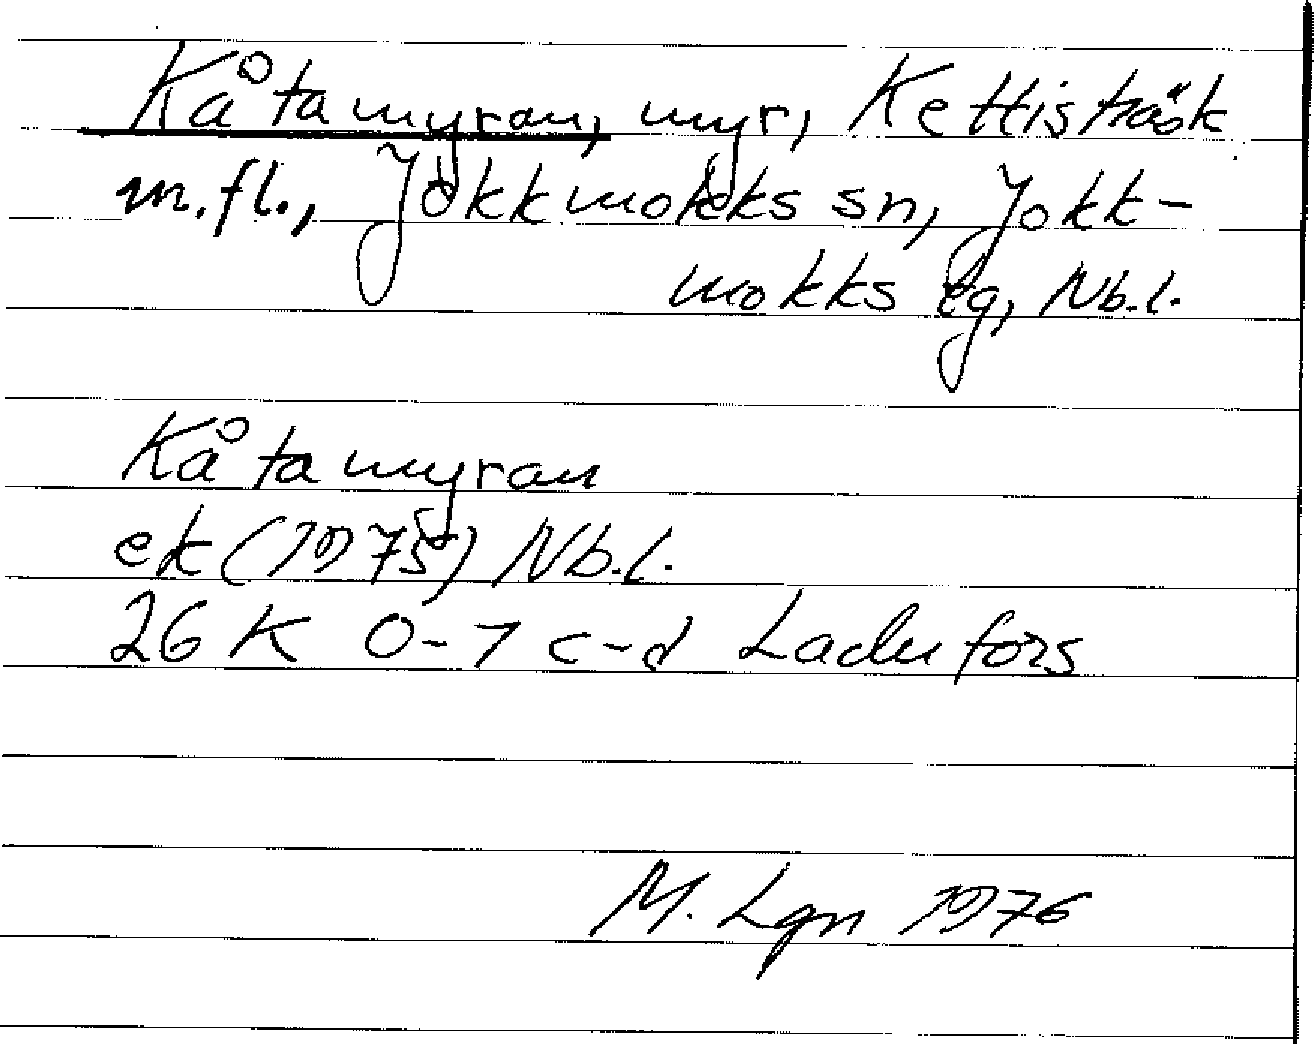 Kåtamyran, myr, Kettisträsk
m.fl., Jokkmokks sn, Jokk-
mokks tg, Nb.l.
Kåtamyran
ek (1975) Nb.l.
26 K 0-1 c-d Ladufors
M. Lgn 1976